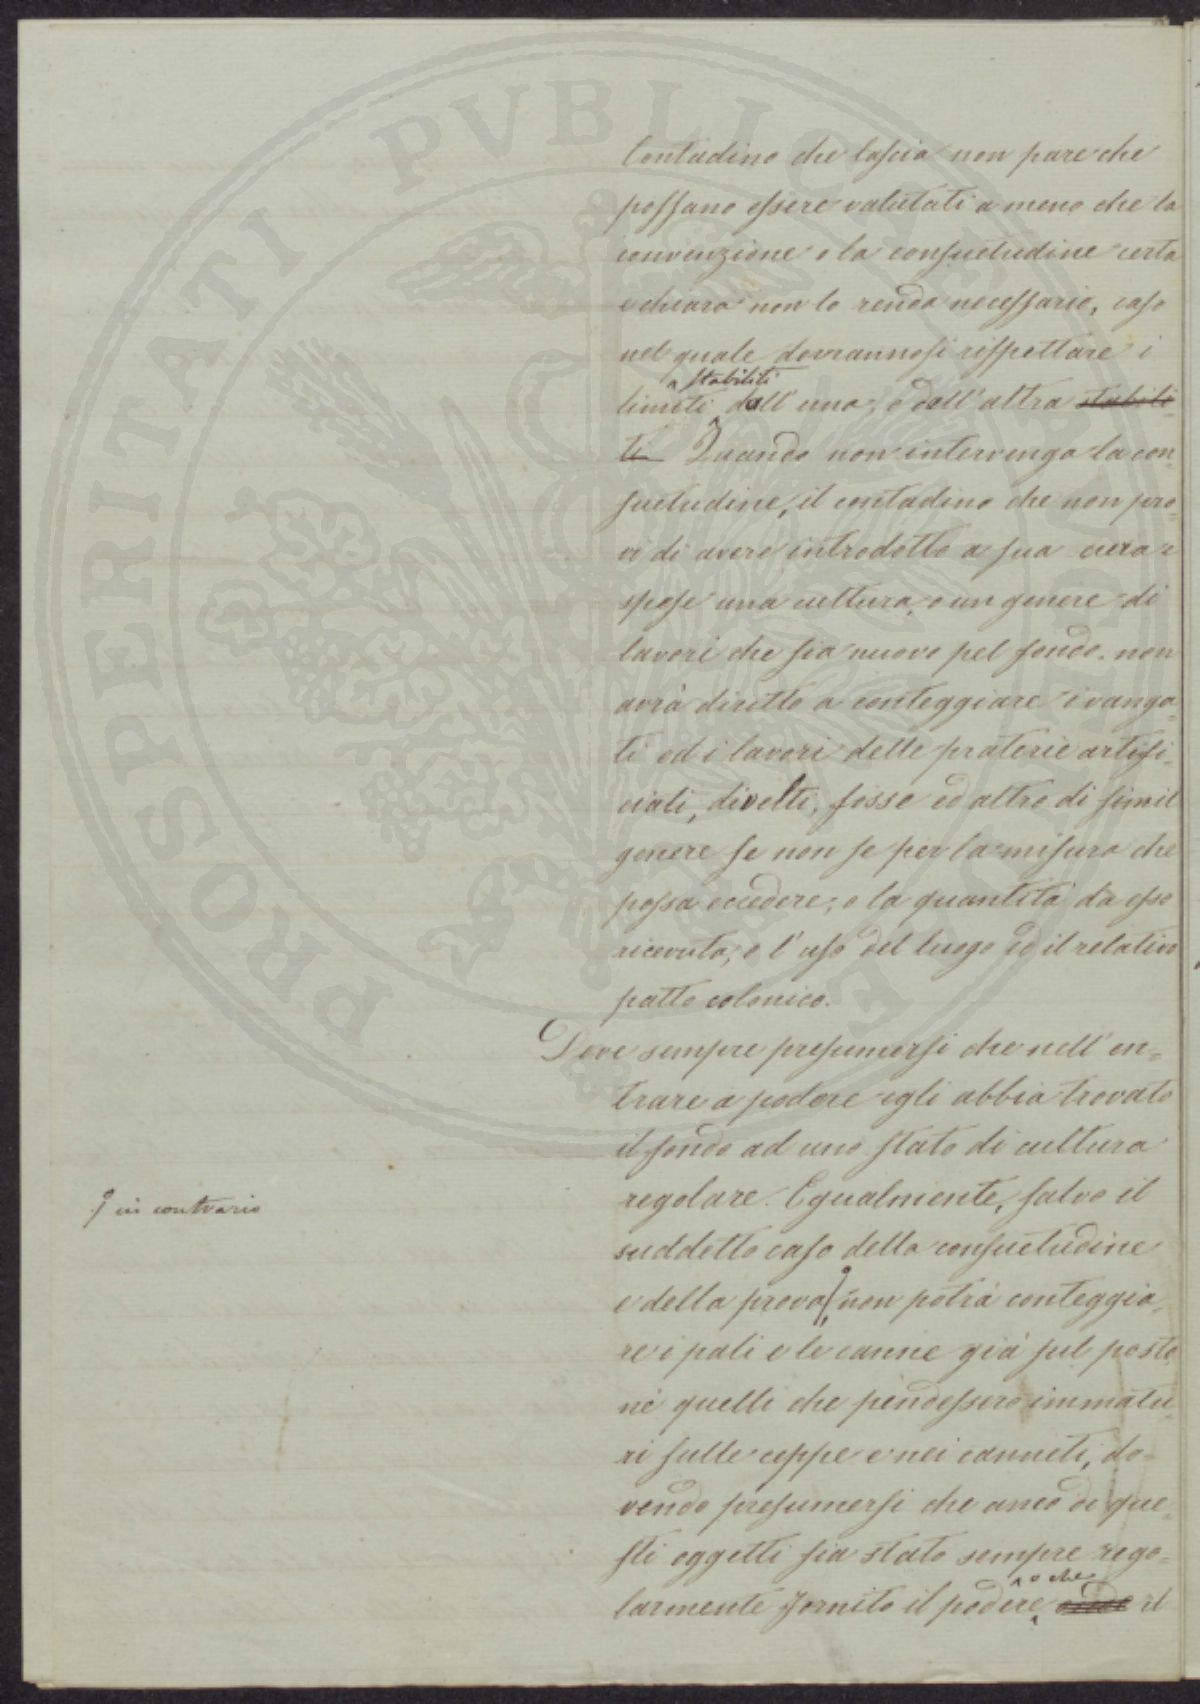 PROSPERITATI PVBLICAE AVGENDAE
Contadino che lascia non pare che
possano essere valutati a meno che la
convenzione o la consuetudine certa
e chiara non lo renda necessario, caso
nel quale dovrannosi rispettare i
stabiliti
limiti dall'una, o dall'altra stabili-
ti Quando non intervenga la con-
suetudine, il contadino che non pro-
vi di avere introdotto a sua cura e
spese una cultura, o un genere di
lavori che sia nuovo pel fondo, non
avrà diritto a conteggiare i vanga-
ti ed i lavori delle praterie artifi-
ciali, divelti, fosse ed altro di simil
genere se non se per la misura che
possa eccedere, o la quantità da esso
ricevuta, o l'uso del luogo ed il relativo
patto colonico.
Deve sempre presumersi che nell'en-
trare a podere egli abbia trovato
il fondo ad uno stato di cultura
regolare. Egualmente, salvo il
in contrario
suddetto caso della consuetudine
e della prova, non potrà conteggia-
re i pali e le canne già sul posto
nè quelli che pendessero immatu-
ri sulle ceppe e nei canneti, do-
vendo presumersi che anco di que-
sti oggetti sia stato sempre rego-
o che
larmente fornito il podere, onde il